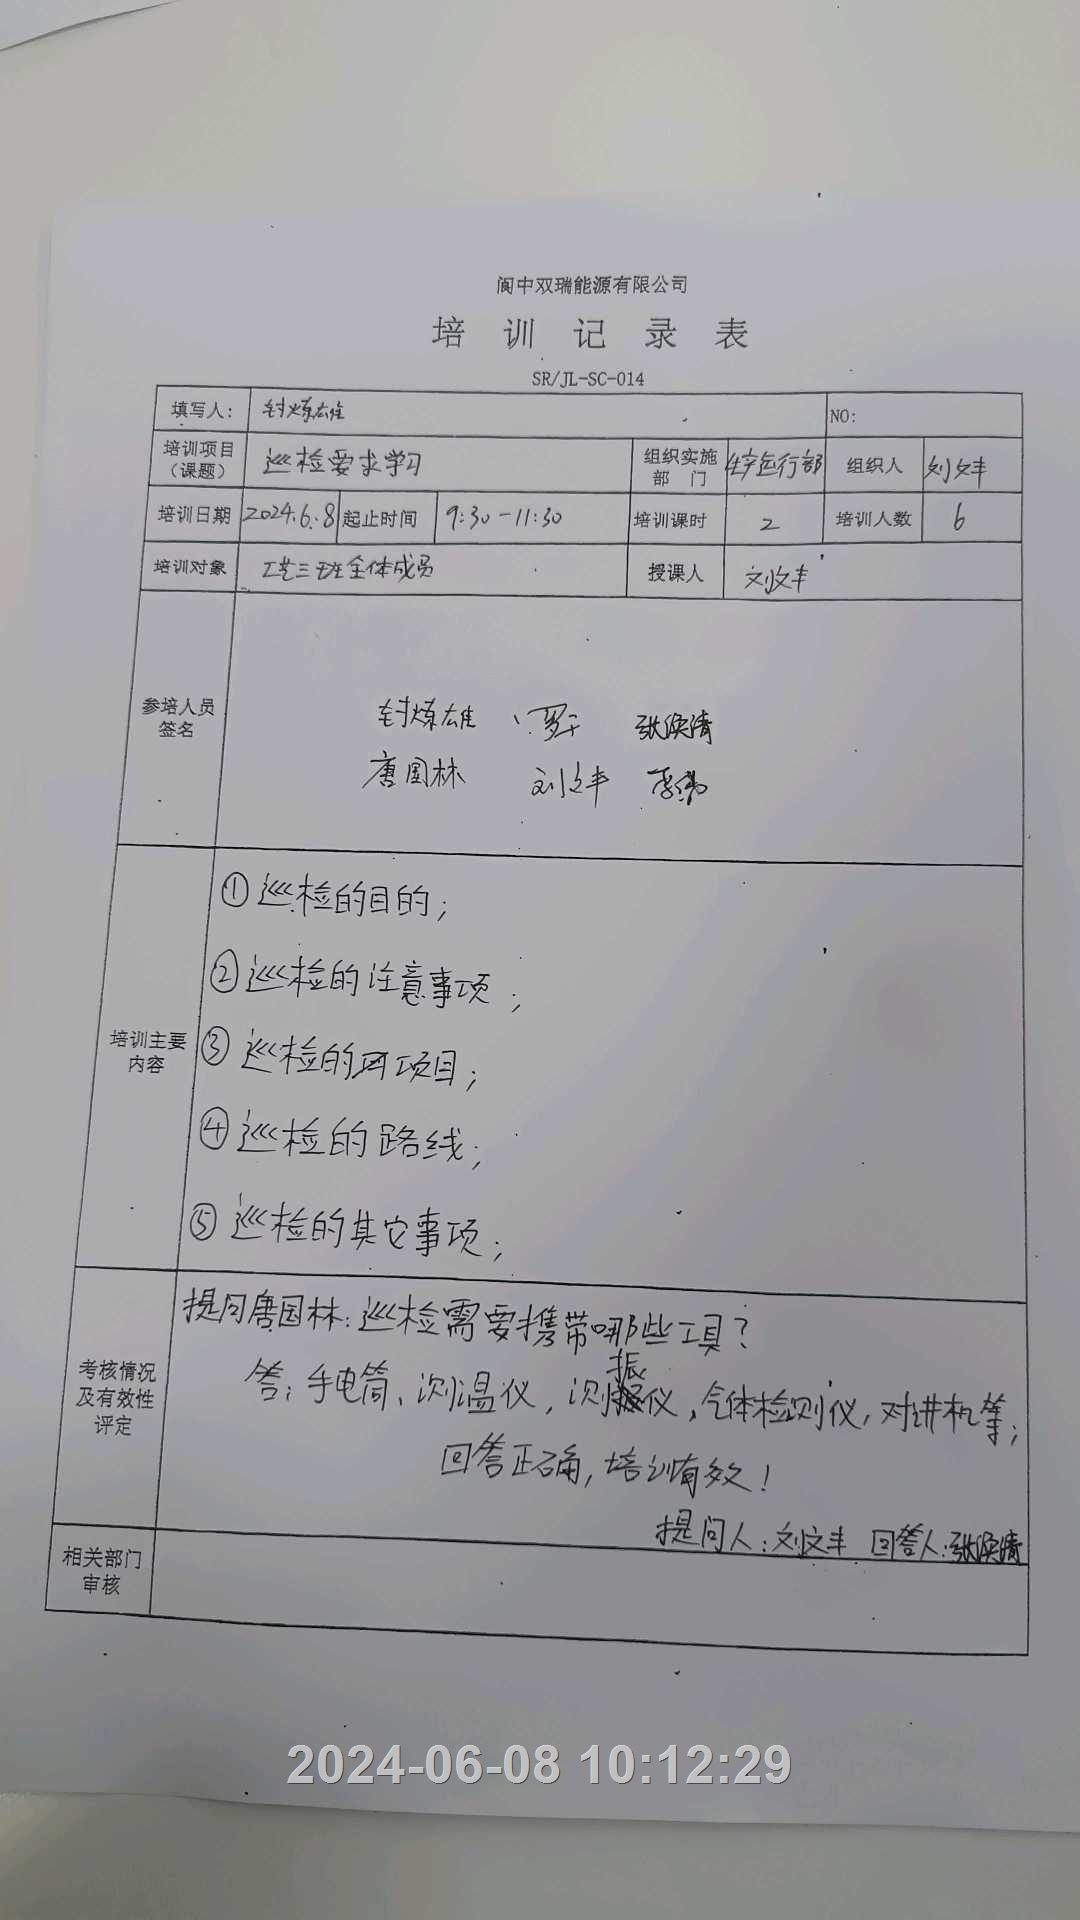 阆中双瑞能源有限公司
培训记录表
SR/JL-SC-014
填写人： 封炼雄 NO:
培训项目（课题） 巡检要求学习 组织实施部门 生产运行部 组织人 刘文丰
培训日期 2024.6.8 起止时间 9:30-11:30 培训课时 2 培训人数 6
培训对象 工艺三班全体成员 授课人 刘文丰
参培人员签名
封炼雄 罗干 张焕清
唐国林 刘文丰 李伟
培训主要内容
①巡检的目的；
②巡检的注意事项；
③巡检的项目；
④巡检的路线；
⑤巡检的其它事项；
考核情况及有效性评定
提问唐国林：巡检需要携带哪些工具？
答：手电筒、测温仪，测振仪，气体检测仪，对讲机等；
回答正确，培训有效！
提问人：刘文丰 回答人：张焕清
相关部门审核
2024-06-08 10:12:29